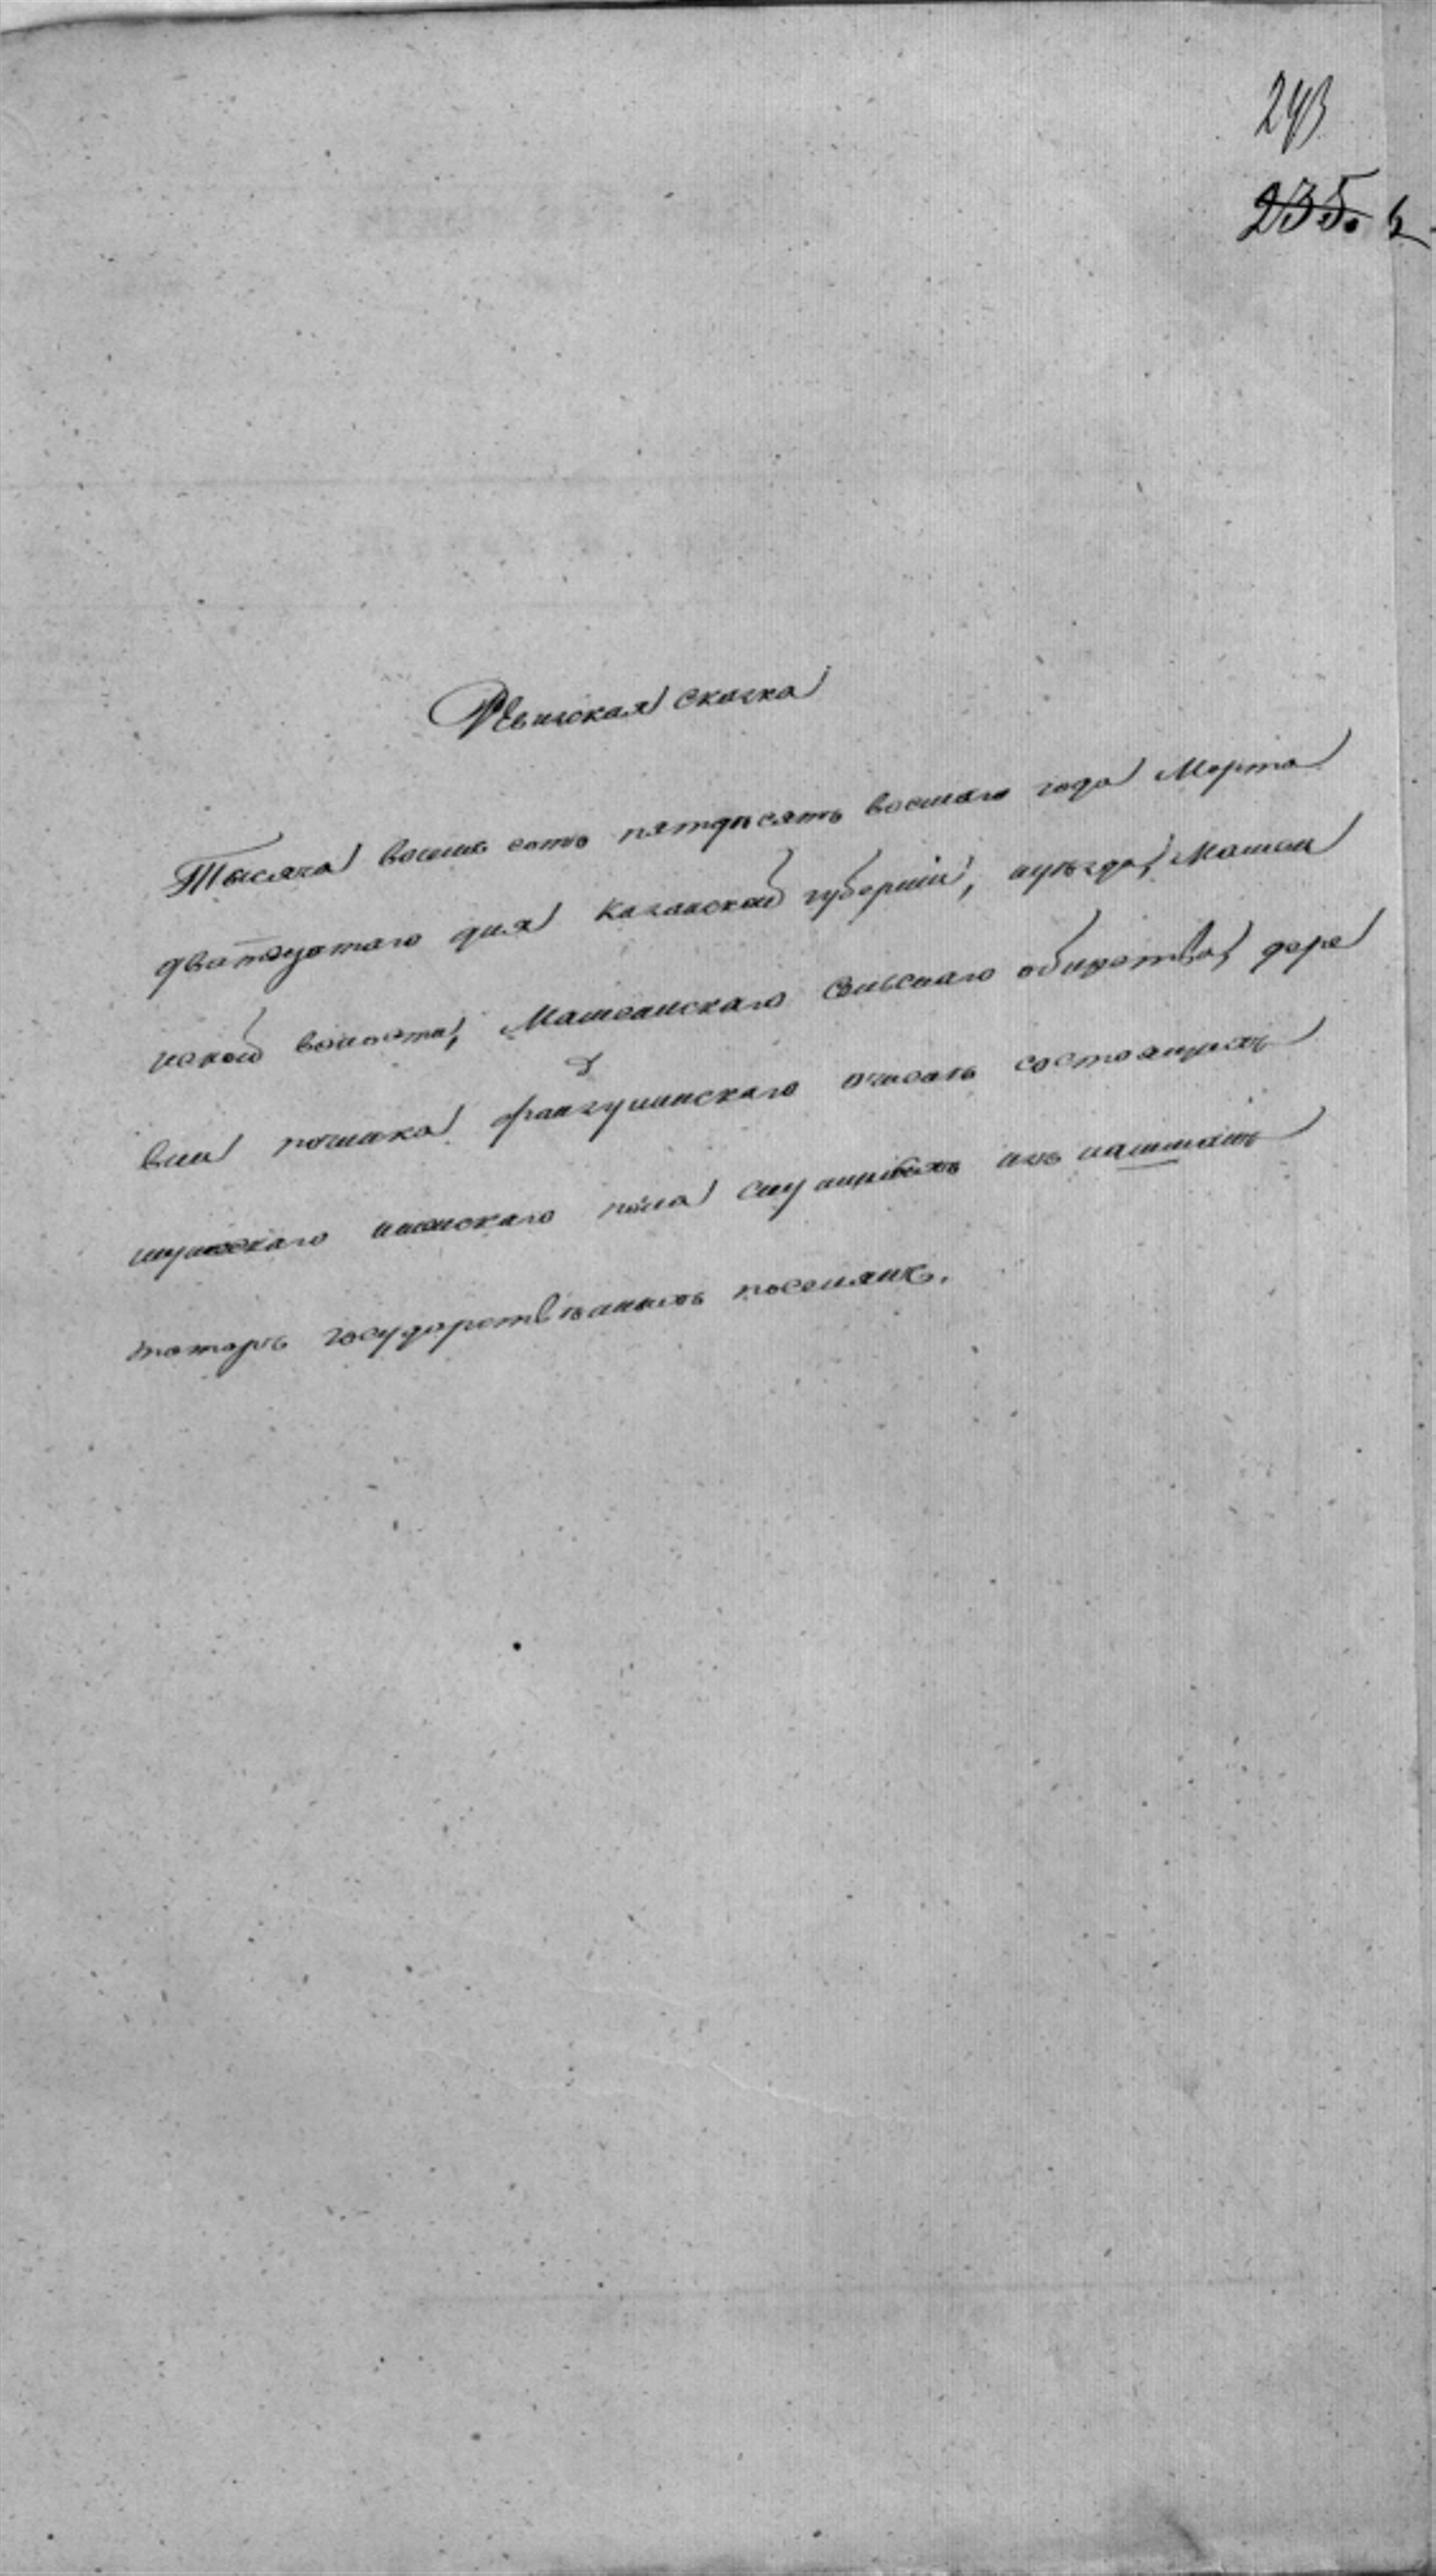 243
235.
Ревизская сказка
Тысяча восемь сотъ пятдесятъ восмаго года Марта
дватцатаго дня Казанской губерніи, уѣзда, Мамса
иской волости, Мамсаискаго сельскаго общества, дере
вни починка о числѣ состоящихъ
мужескаго женскаго пола служивыхъ изъ
татаръ государственныхъ поселянъ.